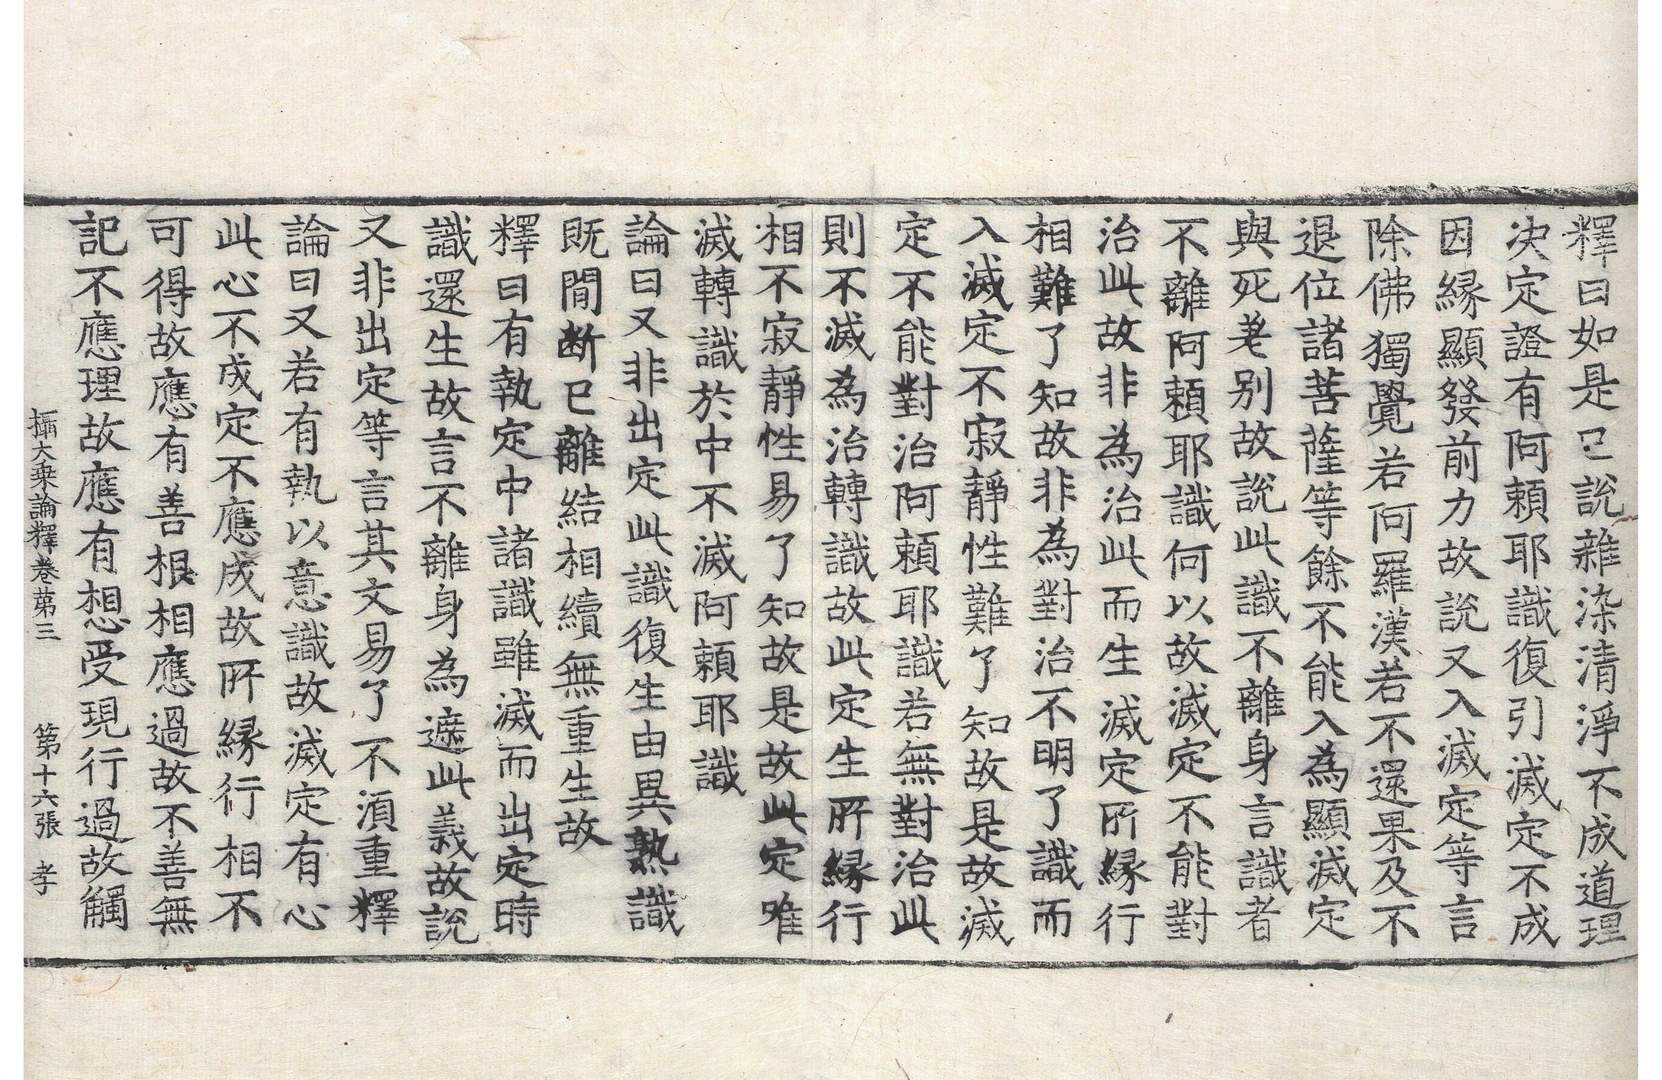 釋曰如是已說雜染清淨不成道理
决定證有阿頼耶識復引滅定不成
因縁顯發前力故說又入滅定等言
除佛獨覺若阿羅漢若不還果及不
退位諸菩薩等餘不能入為顯滅定
與死差别故說此識不離身言識者
不離阿頼耶識何以故滅定不能對
治此故非為治此而生滅定所縁行
相難了知故非為對治不明了識而
入滅定不寂靜性難了知故是故滅
定不能對治阿頼耶識若無對治此
則不滅為治轉識故此定生所縁行
相不寂靜性易了知故是故此定唯
滅轉識於中不滅阿頼耶識
論曰又非出定此識復生由異熟識
既間断已離結相續無重生故
釋曰有執定中諸識雖滅而出定時
識還生故言不離身為遮此義故說
又非出定等言其文易了不湏重釋
論曰又若有執以意識故滅定有心
此心不成定不應成故所縁行相不
可得故應有善根相應過故不善無
記不應理故應有想受現行過故觸
攝大乘論釋卷第三　第十六張　孝